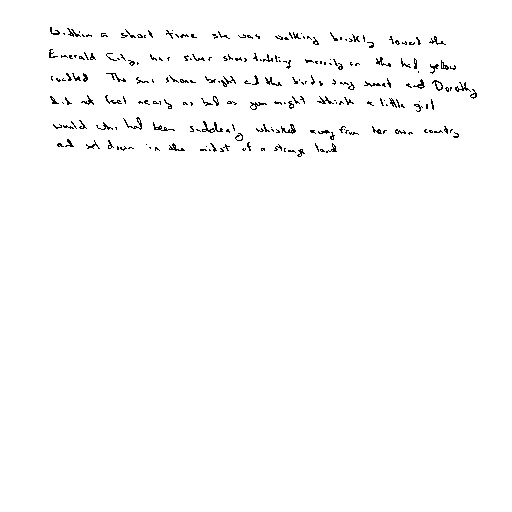 Within a short time she was walking briskly toward the
Emerald City, her silver shoes tinkling merrily on the hard, yellow
roadbed. The sun shone bright and the birds sang sweet and Dorothy
did not feel nearly as bad as you might think a little girl
would who had been suddenly whisked away from her own country
and set down in the midst of a strange land